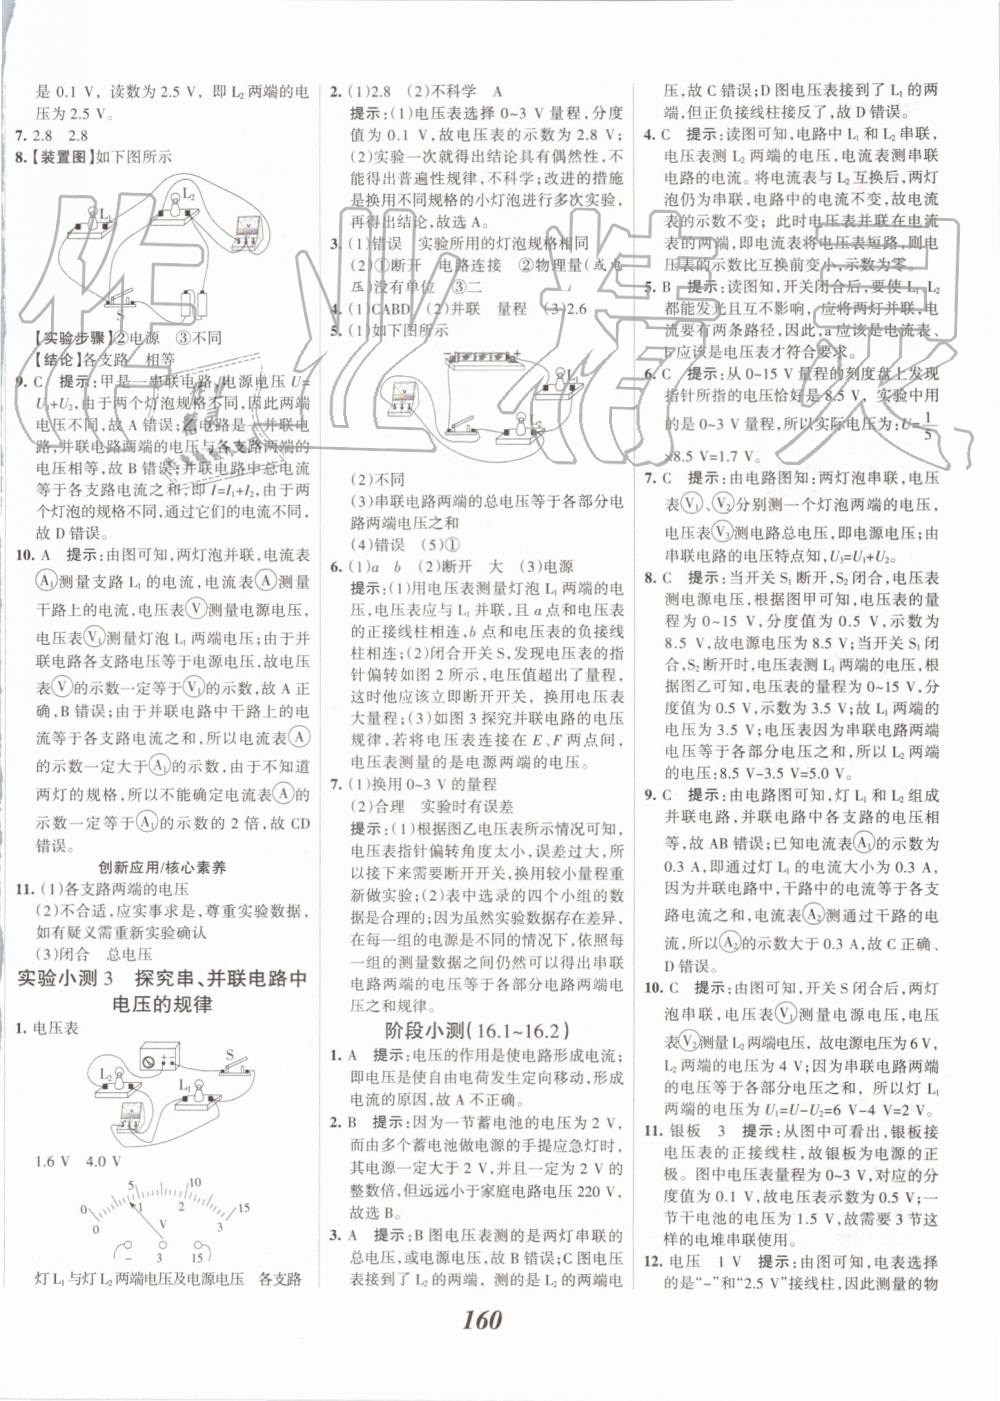 是 0.1 V，读数为 2.5 V，即 L₂ 两端的电
压为 2.5 V。
7. 2.8　2.8
8.【装置图】如下图所示
L₁
L₂
V
S
【实验步骤】②电源　③不同
【结论】各支路　相等
9. C　提示：甲是一串联电路，电源电压 U=
U₁+U₂，由于两个灯泡规格不同，因此两端
电压不同，故 A 错误；乙电路是一并联电
路，并联电路两端的电压与各支路两端的
电压相等，故 B 错误；并联电路中总电流
等于各支路电流之和，即 I=I₁+I₂，由于两
个灯泡的规格不同，通过它们的电流不同，
故 D 错误。
10. A　提示：由图可知，两灯泡并联，电流表
Ⓐ₁测量支路 L₁ 的电流，电流表Ⓐ测量
干路上的电流，电压表Ⓥ测量电源电压，
电压表Ⓥ₁测量灯泡 L₁ 两端电压；由于并
联电路各支路电压等于电源电压，故电压
表Ⓥ的示数一定等于Ⓥ₁的示数，故 A 正
确，B 错误；由于并联电路中干路上的电
流等于各支路电流之和，所以电流表Ⓐ
的示数一定大于Ⓐ₁的示数，由于不知道
两灯的规格，所以不能确定电流表Ⓐ的
示数一定等于Ⓐ₁的示数的 2 倍，故 CD
错误。
创新应用/核心素养
11. (1)各支路两端的电压
(2)不合适，应实事求是，尊重实验数据，
如有疑义需重新实验确认
(3)闭合　总电压
实验小测 3　探究串、并联电路中
电压的规律
1. 电压表
S
L₂
L₁
1.6 V　4.0 V
0 5 10 15
0 1 2 3
V
- 3 15
灯 L₁与灯 L₂两端电压及电源电压　各支路
2. (1)2.8　(2)不科学　A
提示：(1)电压表选择 0~3 V 量程，分度
值为 0.1 V，故电压表的示数为 2.8 V；
(2)实验一次就得出结论具有偶然性，不
能得出普遍性规律，不科学；改进的措施
是换用不同规格的小灯泡进行多次实验，
再得出结论，故选 A。
3. (1)错误　实验所用的灯泡规格相同
(2)①断开　电路连接　②物理量(或电
压)没有单位　③二
4. (1)CABD　(2)并联　量程　(3)2.6
5. (1)如下图所示
(2)不同
(3)串联电路两端的总电压等于各部分电
路两端电压之和
(4)错误　(5)①
6. (1)a　b　(2)断开　大　(3)电源
提示：(1)用电压表测量灯泡 L₁ 两端的电
压，电压表应与 L₁ 并联，且 a 点和电压表
的正接线柱相连，b 点和电压表的负接线
柱相连；(2)闭合开关 S，发现电压表的指
针偏转如图 2 所示，电压值超出了量程，
这时他应该立即断开开关，换用电压表
大量程；(3)如图 3 探究并联电路的电压
规律，若将电压表连接在 E、F 两点间，
电压表测量的是电源两端的电压。
7. (1)换用 0~3 V 的量程
(2)合理　实验时有误差
提示：(1)根据图乙电压表所示情况可知，
电压表指针偏转角度太小，误差过大，所
以接下来需要断开开关，换用较小量程重
新做实验；(2)表中选录的四个小组的数
据是合理的；因为虽然实验数据存在差异，
在每一组的电源不同的情况下，依照每
一组的测量数据之间仍然可以得出串联
电路两端的电压等于各部分电路两端电
压之和的规律
阶段小测(16.1~16.2)
1. A　提示：电压的作用是使电路形成电流；
即电压是使自由电荷发生定向移动，形成
电流的原因，故 A 不正确。
2. B　提示：因为一节蓄电池的电压为 2 V，
而由多个蓄电池做电源的手提应急灯时，
其电源电压一定大于 2 V，且一定为 2 V 的
整数倍，但远远小于家庭电路电压 220 V，
故选 B。
3. A　提示：B 图电压表测的是两灯串联的
总电压，或电源电压，故 B 错误；C 图电压
表接到了 L₂ 的两端，测的是 L₂ 的两端电
压，故 C 错误；D 图电压表接到了 L₁ 的两
端，但正负接线柱接反了，故 D 错误。
4. C　提示：读图可知，电路中 L₁ 和 L₂ 串联，
电压表测 L₂ 两端的电压，电流表测串联
电路的电流。将电流表与 L₂ 互换后，两灯
泡仍为串联，电路中的电流不变，故电流
表的示数不变；此时电压表并联在电流表
的两端，即电流表将电压表短路，则电
压表的示数比互换前变小，示数为零。
5. B　提示：读图知，开关闭合后，要使 L₁、L₂
都能发光且互不影响，应将两灯并联，电
流要有两条路径，因此，a 应该是电流表、
b 应该是电压表才符合要求。
6. C　提示：从 0~15 V 量程的刻度盘上发现
指针所指的电压恰好是 8.5 V，实验中用
的是 0~3 V 量程，所以实际电压为：U=1/5
×8.5 V=1.7 V。
7. C　提示：由电路图知：两灯泡串联，电压
表Ⓥ₁、Ⓥ₂分别测一个灯泡两端的电压，
电压表Ⓥ₃测电路总电压，即电源电压，由
串联电路的电压特点知，U₃=U₁+U₂。
8. C　提示：当开关 S₁断开，S₂ 闭合，电压表
测电源电压，根据图甲可知，电压表的量
程为 0~15 V，分度值为 0.5 V，示数为
8.5 V，故电源电压为 8.5 V；当开关 S₁ 闭
合，S₂ 断开时，电压表测 L₁ 两端的电压，根
据图乙可知，电压表的量程为 0~15 V，分
度值为 0.5 V，示数为 3.5 V；故 L₁ 两端的
电压为 3.5 V；电压表因为串联电路两端
电压等于各部分电压之和，所以 L₂ 两端
的电压：8.5 V-3.5 V=5.0 V。
9. C　提示：由电路图可知，灯 L₁ 和 L₂ 组成
并联电路，并联电路中各支路的电压相
等，故 AB 错误；已知电流表Ⓐ₁的示数为
0.3 A，即通过灯 L₁ 的电流大小为 0.3 A，
因为并联电路中，干路中的电流等于各支
路电流之和，电流表Ⓐ₂测通过干路的电
流，所以Ⓐ₂的示数大于 0.3 A，故 C 正确，
D 错误。
10. C　提示：由图可知，开关 S 闭合后，两灯
泡串联，电压表Ⓥ₁测量电源电压，电压
表Ⓥ₂测量 L₂ 两端电压，故电源电压为 6 V，
L₂ 两端的电压为 4 V；因为串联电路两端
的电压等于各部分电压之和，所以灯 L₁
两端的电压为 U₁=U-U₂=6 V-4 V=2 V。
11. 银板　3　提示：从图中可看出，银板接
电压表的正接线柱，故银板为电源的正
极。图中电压表量程为 0~3 V，对应的分
度值为 0.1 V，故电压表示数为 0.5 V；一
节干电池的电压为 1.5 V，故需要 3 节这
样的电堆串联使用。
12. 电压　1 V　提示：由图可知，电表选择
的是“-”和“2.5 V”接线柱，因此测量的物
160
作业精灵